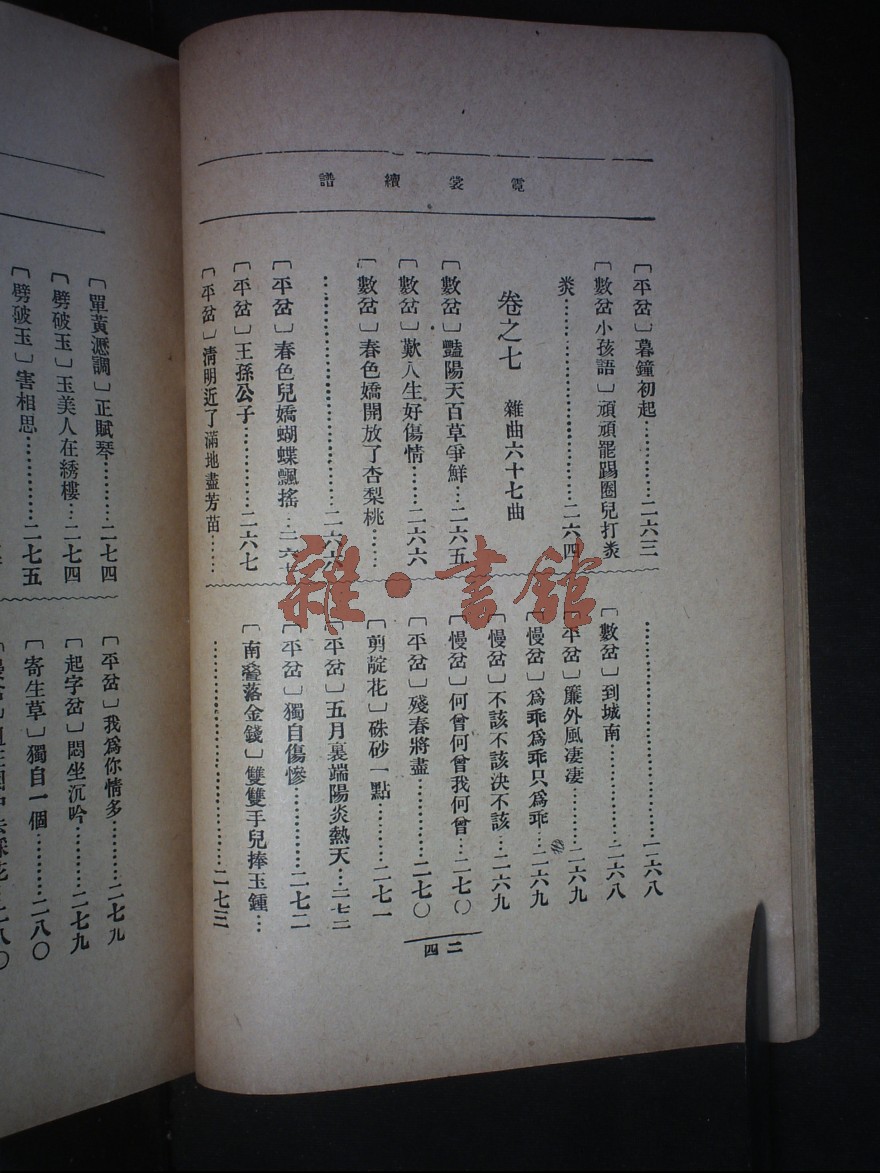 霓裳續譜
〔平岔〕暮鐘初起…………二六三
〔數岔小孩語〕頑頑罷踢圈兒打
…………………二六四
卷之七　雜曲六十七曲
〔數岔〕豔陽天百草爭鮮…二六五
〔數岔〕歎人生好傷情……二六六
〔數岔〕春色嬌開放了杏梨桃……
…………………二六六
〔平岔〕春色兒嬌蝴蝶飄搖…二六七
〔平岔〕王孫公子…………二六七
〔平岔〕清明近了滿地盡芳苗……
…………………二六八
〔數岔〕到城南……………二六八
〔平岔〕簾外風凄凄………二六九
〔慢岔〕爲乖爲乖只爲乖…二六九
〔慢岔〕不該不該決不該…二六九
〔慢岔〕何曾何曾我何曾…二七〇
〔平岔〕殘春將盡…………二七〇
〔剪靛花〕硃砂一點………二七一
〔平岔〕五月裏端陽炎熱天…二七二
〔平岔〕獨自傷慘…………二七二
〔南疊落金錢〕雙雙手兒捧玉鍾…
…………………二七三
二四
〔單黃瀝調〕正賦琴………二七四
〔劈破玉〕玉美人在綉樓…二七四
〔劈破玉〕害相思…………二七五
〔平岔〕我爲你情多………二七九
〔起字岔〕悶坐沉吟………二七九
〔寄生草〕獨自一個………二八〇
二八〇
雜·書館